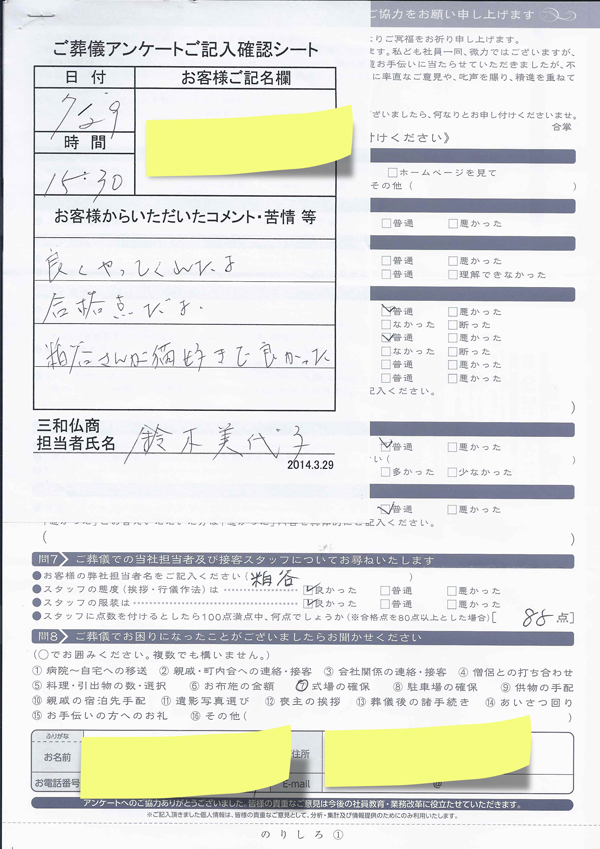 ご協力をお願い申し上げます
ご葬儀アンケートご記入確認シート
日 付
お客様ご記名欄
7/29
時 間
15:30
お客様からいただいたコメント・苦情 等
良くやってくれたよ
合格点だよ.
粕谷さんが猫好きで良かった
三和仏商
担当者氏名 鈴木美代子
2014.3.29
よりご冥福をお祈り申し上げます。
ます。私ども社員一同、微力ではございますが、
お手伝いに当たらせていただきましたが、不
に率直なご意見や、叱声を賜り、精進を重ねて
ございましたら、何なりとお申し付けくださいませ。
合掌
付けください》
□ホームページを見て
その他（ ）
□普通 □悪かった
□普通 □悪かった
□普通 □理解できなかった
☑普通 □悪かった
□なかった □断った
☑普通 □悪かった
□なかった □断った
□普通 □悪かった
□普通 □悪かった
記入ください。
）
☑普通 □悪かった
い（ ）
□多かった □少なかった
☑普通 □悪かった
ご記入ください。
（ ）
問7 ご葬儀での当社担当者及び接客スタッフについてお尋ねいたします
●お客様の弊社担当者名をご記入ください（ 粕谷 ）
●スタッフの態度（挨拶・行儀作法）は ☑良かった □普通 □悪かった
●スタッフの服装は ☑良かった □普通 □悪かった
●スタッフに点数を付けるとしたら100点満点中、何点でしょうか（※合格点を80点以上とした場合）[ 88 点]
問8 ご葬儀でお困りになったことがございましたらお聞かせください
（○でお囲みください。複数でも構いません。）
①病院～自宅への移送 ②親戚・町内会への連絡・接客 ③会社関係の連絡・接客 ④僧侶との打ち合わせ
⑤料理・引出物の数・選択 ⑥お布施の金額 ⑦式場の確保 ⑧駐車場の確保 ⑨供物の手配
⑩親戚の宿泊先手配 ⑪遺影写真選び ⑫喪主の挨拶 ⑬葬儀後の諸手続き ⑭あいさつ回り
⑮お手伝いの方へのお礼 ⑯その他（ ）
ふりがな
お名前
住所
お電話番号
E-mail
@
アンケートへのご協力ありがとうございました。皆様の貴重なご意見は今後の社員教育・業務改革に役立たせていただきます。
※ご記入頂きました個人情報は、皆様の貴重なご意見として、分析・集計及び情報提供のためにのみ利用いたします。
のりしろ①